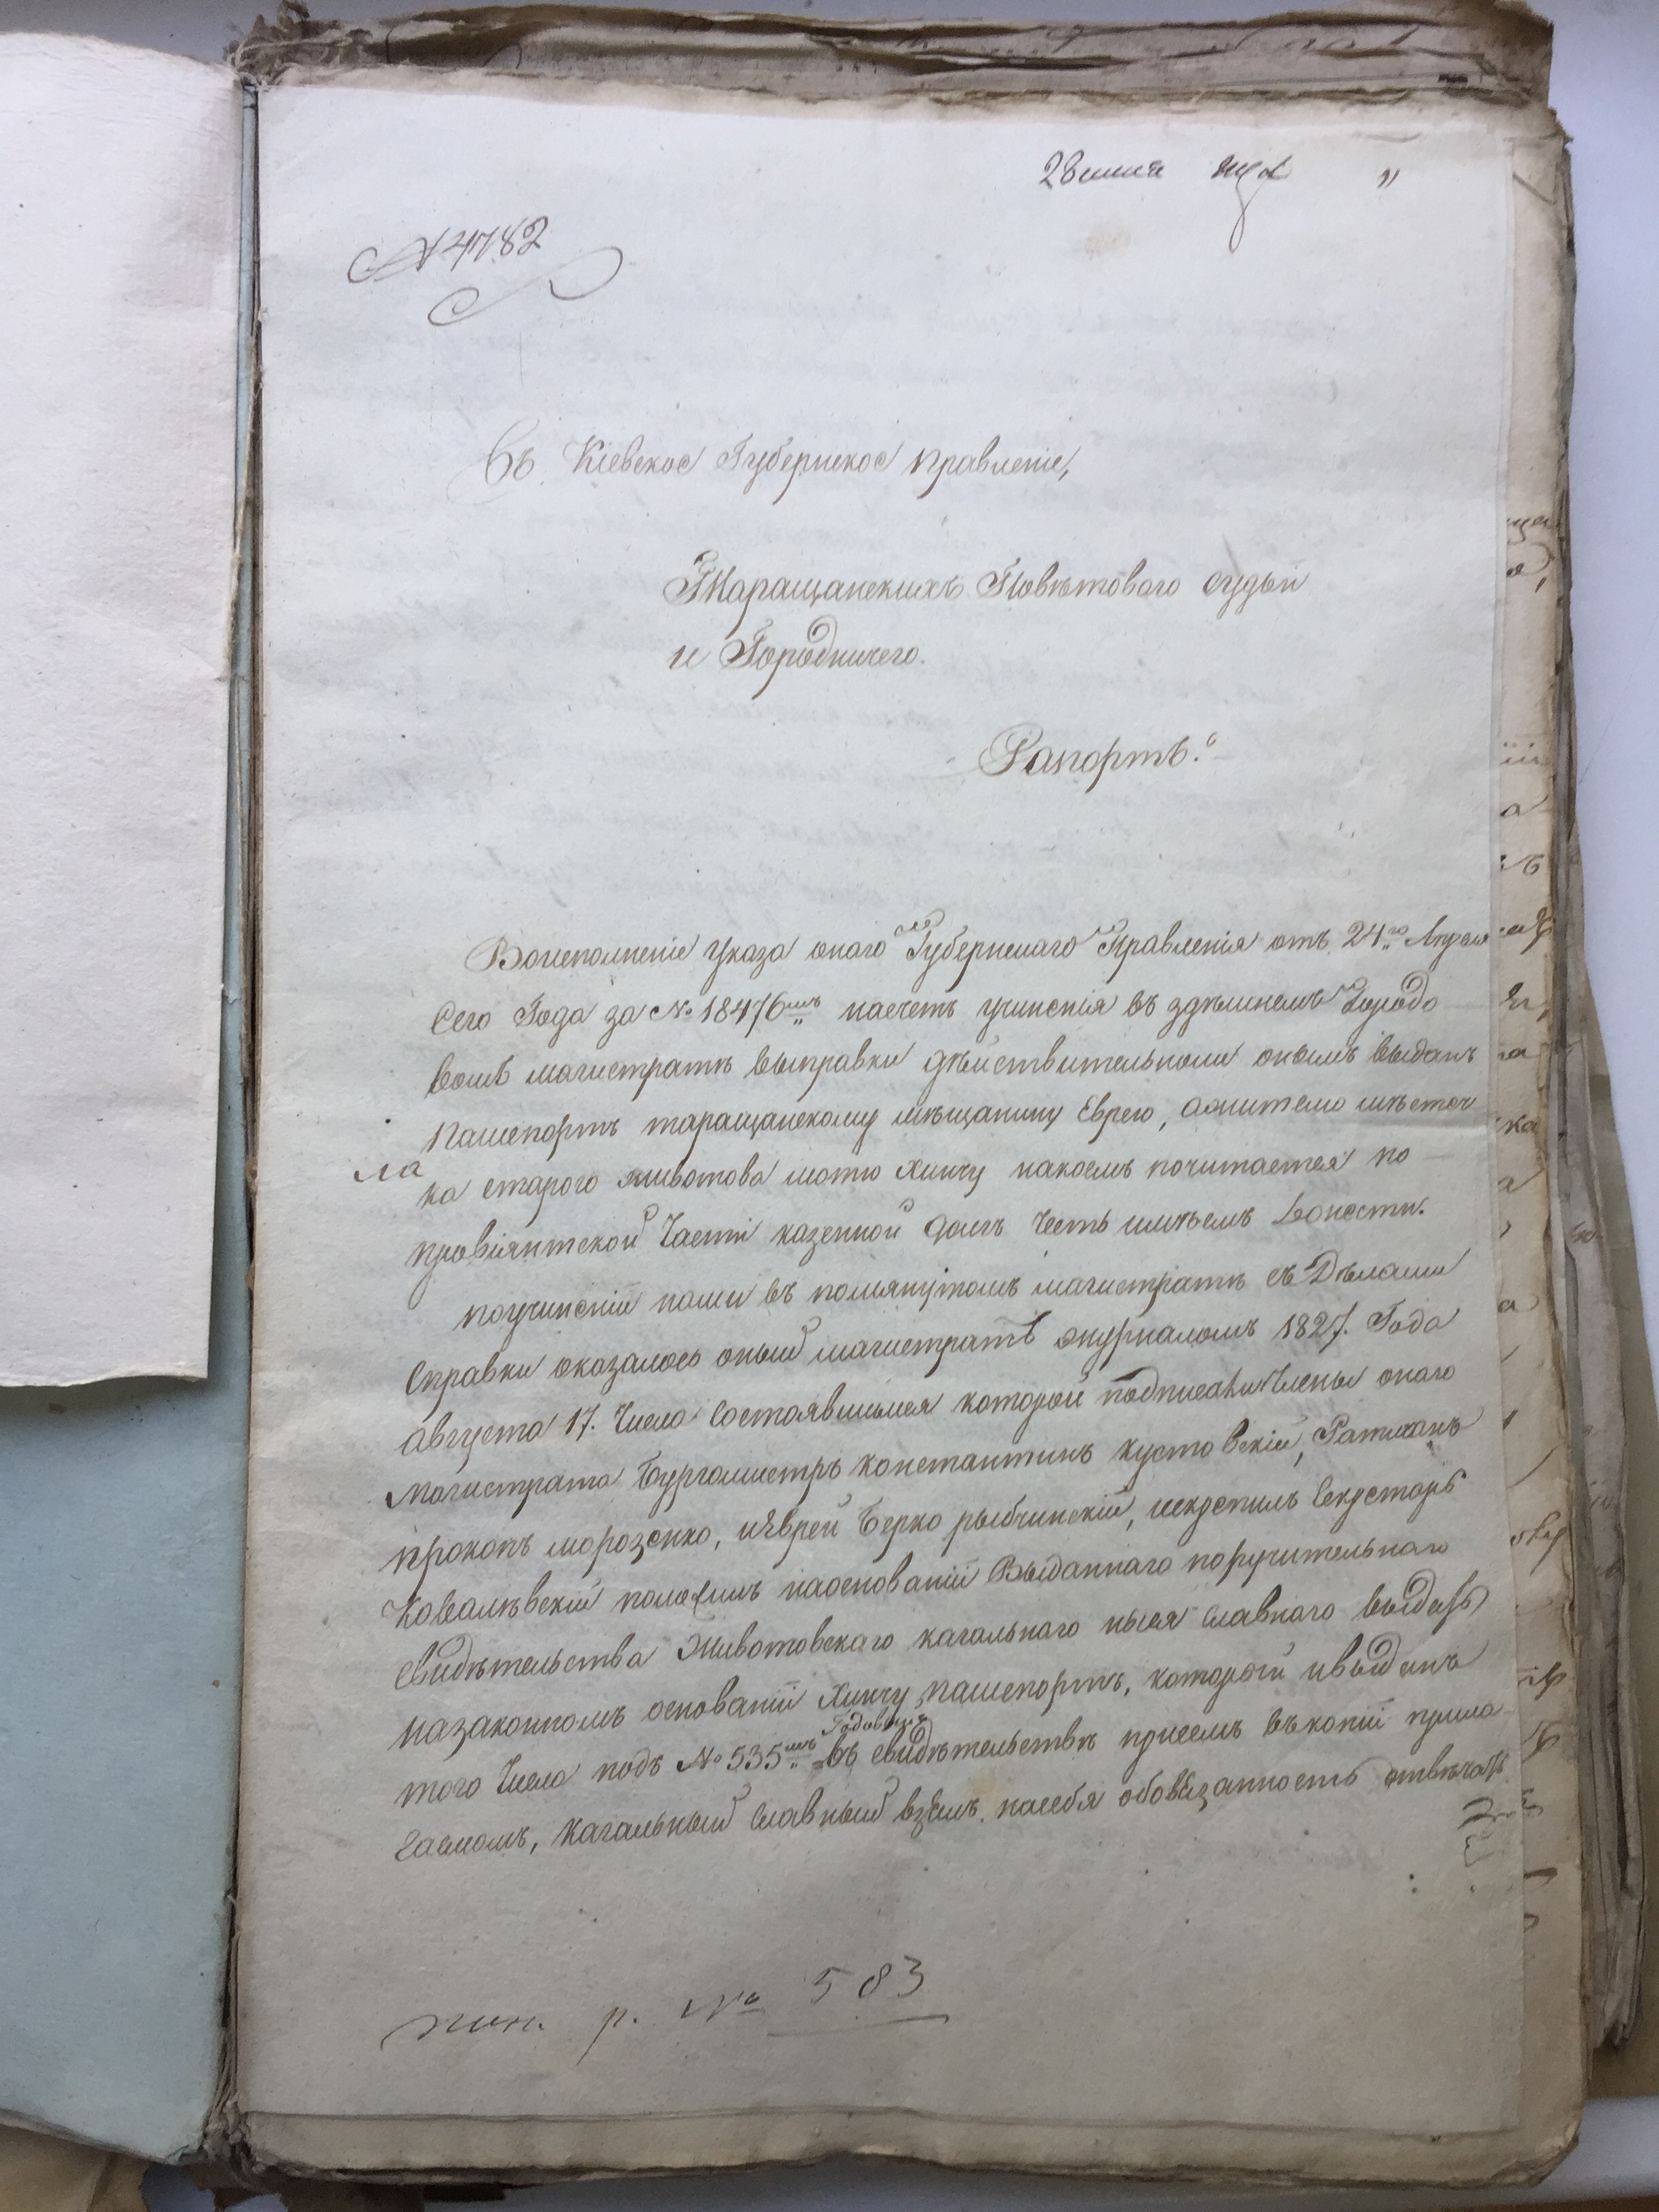 28 июня
№ 4782
Въ Кіевское Губернское правленіе,
Таращанскихъ Повѣтового судьи
и Городничего.
Рапортъ.
Воисполненіе Указа оного Губернскаго Правленія отъ 24го Апреля
Сего Года за № 18476мъ насчетъ учиненія въ здѣшнемъ Городо
вомъ магистратѣ выправки дѣйствительноли онымъ выданъ
пашепортъ таращанскому мѣщанину Еврею, Жителю мѣстеч
ка старого животова мотю хинчу накоемъ почитается по
ла
провіянтской Части казенной долгъ Честь имѣемъ Донести.
поучиненіи нами въ помянутомъ магистратѣ съ Дѣлами
Справки оказалось оный магистратъ журналомъ 1827. Года
августа 17. Числа Состоявшимся которой подписали Члены оного
магистрата Бургомистръ константинъ кустовскій, Ратманъ
прокопъ морозенко, иЯврей Берко рыбчинскій, искрепилъ Секретарь
Ковалѣвскій наоснованіи Выданнаго поручительнаго
свидѣтельства Животовскаго кагальнаго Славнаго выдать
назаконномъ основаніи Хинчу пашепортъ, которой ивыданъ
Годовый
того Числа подъ № 535мъ въ свидѣтельствѣ присемъ въкопіи прила
гаемомъ, кагальный Славный взялъ насебя обовязанность отвѣчать
р. № 583